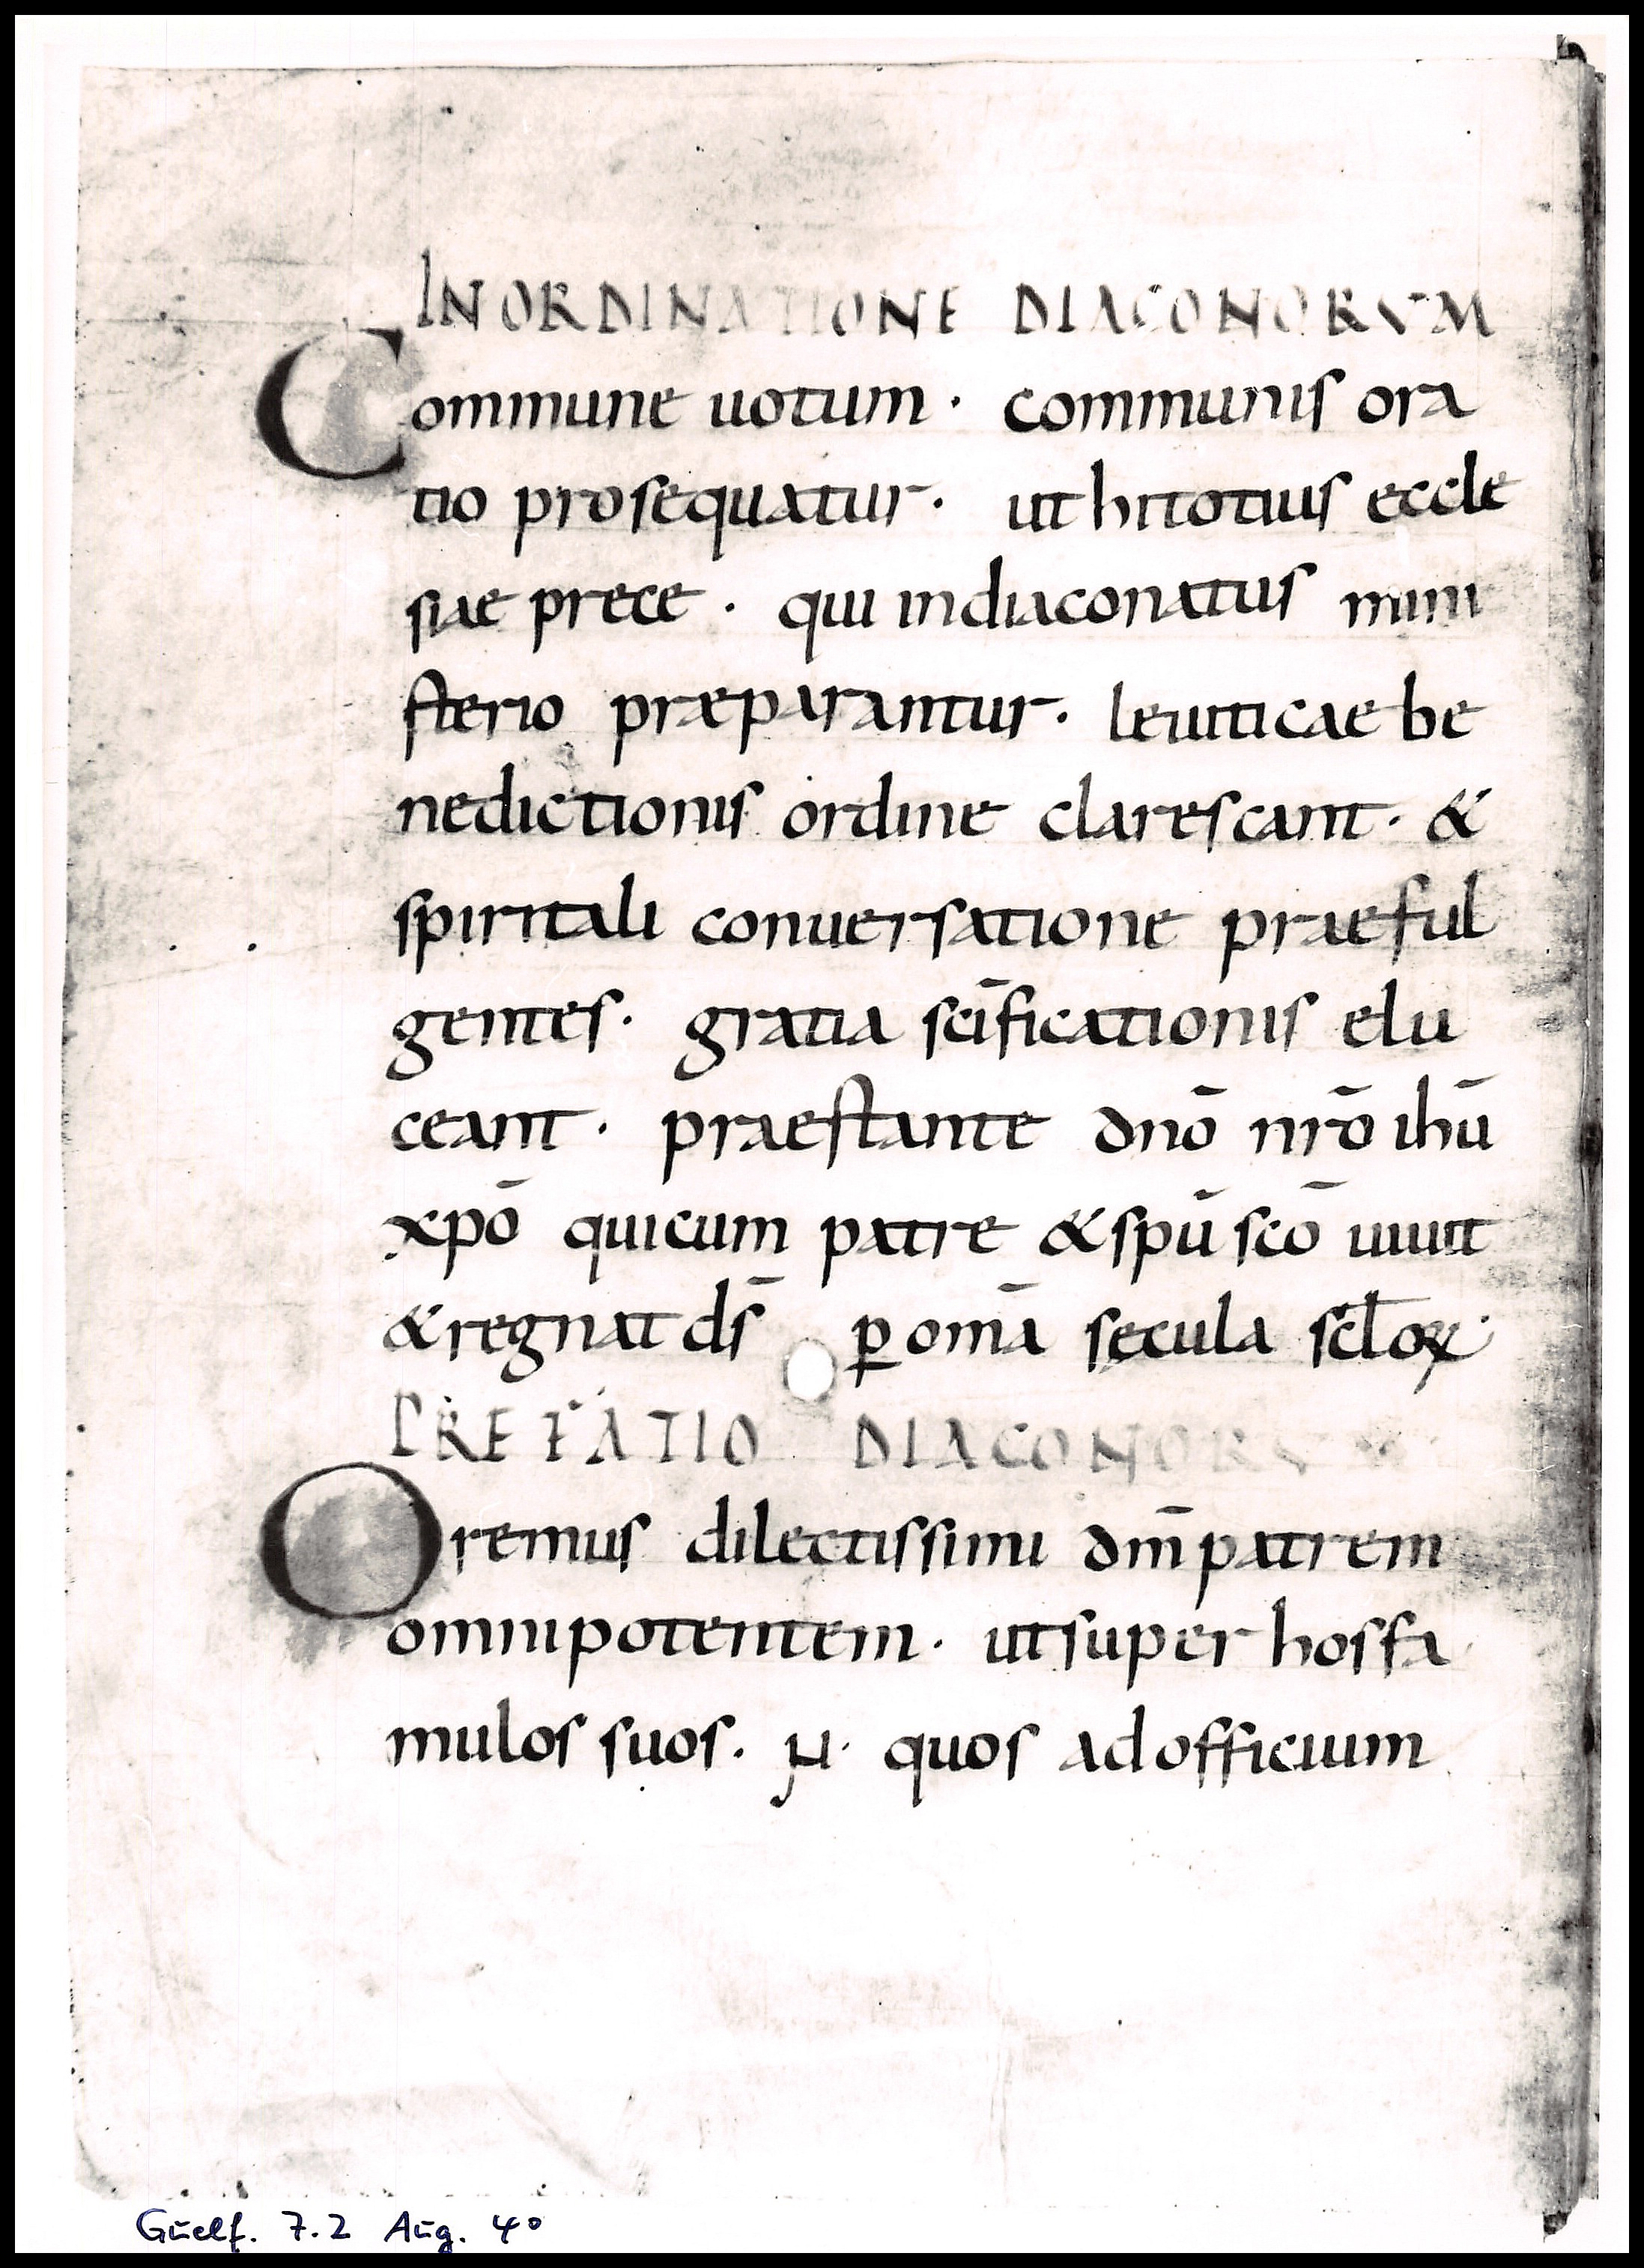 IN ORDINATIONE DIACONORVM
Commune uotum · communis ora
tio prosequatur · ut hii totius eccle
siae prece · qui in diaconatus mini
sterio præparantur · leuiticae be
nedictionis ordine clarescant · &
spiritali conuersatione praeful
gentes · gratia sc̄ificationis elu
ceant · praestante dn̄o nr̄o ihū
xp̄o qui cum patre & sp̄u sc̄o uiuit
& regnat ds̄ ꝑ om̄a secula scl̄oꝝ
PREFATIO DIACONORV
Oremus dilectissimi dm̄ patrem
omnipotentem · ut super hos fa
mulos suos · quos ad officium
Guelf. 7.2 Aug. 4°